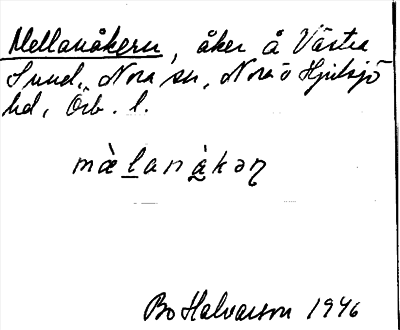 Mellanåkern, åker å Västra
Sund, Nora sn, Nora o Hjulsjö
hd, Örb. l.
mæ̀lanà̱kəɳ
Bo Halvarson 1946